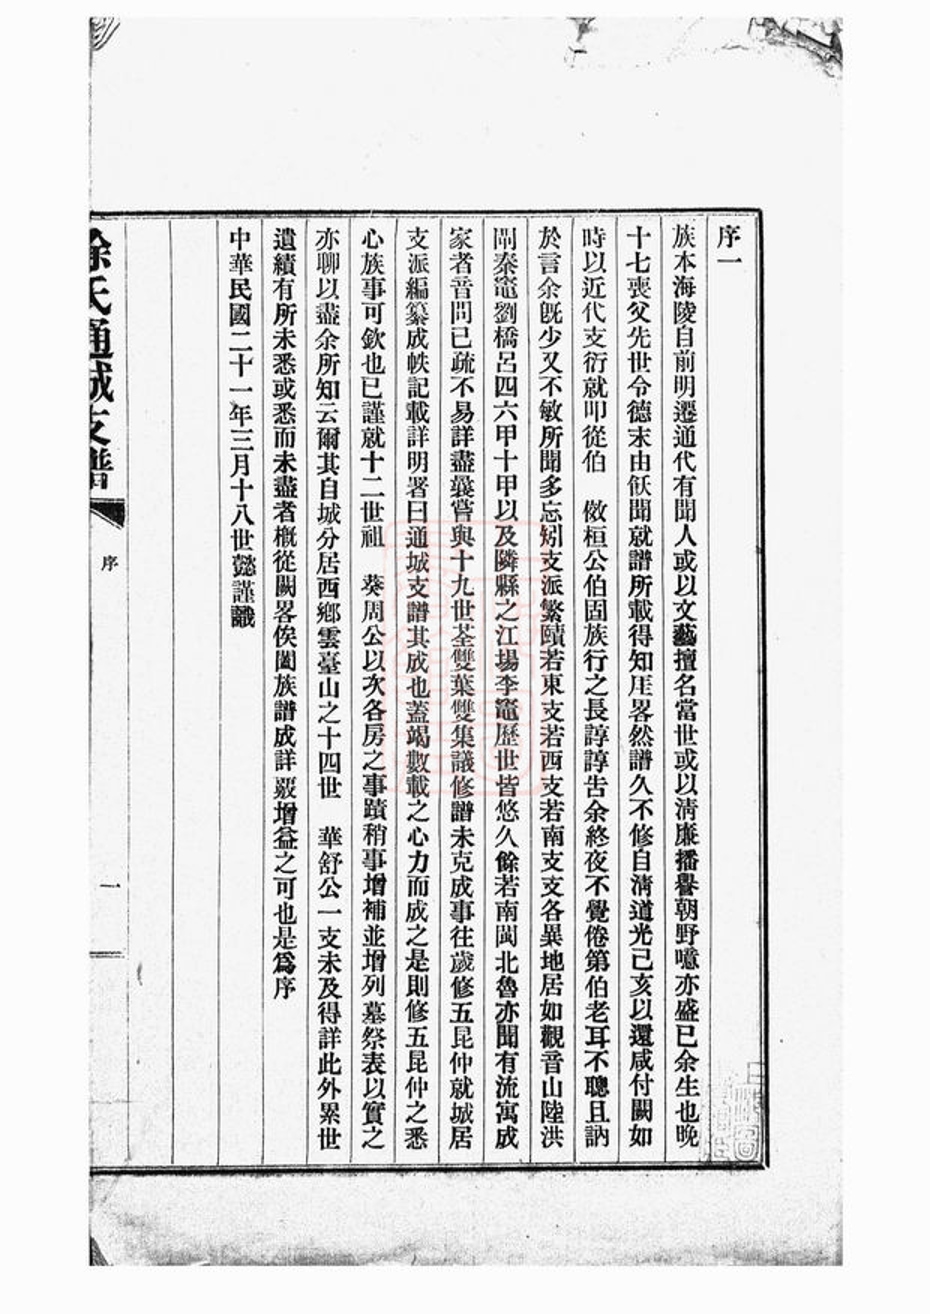 序一
族本海陵自前明遷通代有聞人或以文藝擅名當世或以淸廉播譽朝野噫亦盛已余生也晚
十七喪父先世令德末由飫聞就譜所載得知厓畧然譜久不修自淸道光己亥以還咸付闕如
時以近代支衍就叩從伯　徵桓公伯固族行之長諄諄吿余終夜不覺倦第伯老耳不聰且訥
於言余旣少又不敏所聞多忘矧支派繁賾若東支若西支若南支支各異地居如觀音山陸洪
閘秦竈劉橋呂四六甲十甲以及隣縣之江場李竈歷世皆悠久餘若南閩北魯亦聞有流寓成
家者音問已疏不易詳盡曩嘗與十九世荃雙葉雙集議修譜未克成事往歲修五昆仲就城居
支派編纂成帙記載詳明署曰通城支譜其成也蓋竭數載之心力而成之是則修五昆仲之悉
心族事可欽也已謹就十二世祖　葵周公以次各房之事蹟稍事增補並增列墓祭表以實之
亦聊以盡余所知云爾其自城分居西鄉雲臺山之十四世　華舒公一支未及得詳此外累世
遺績有所未悉或悉而未盡者槪從闕畧俟闔族譜成詳覈增益之可也是爲序
中華民國二十一年三月十八世懿謹識
氏通城支譜
序
一